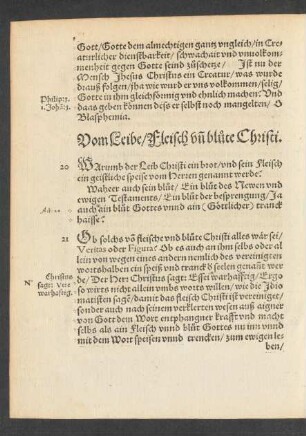 Gott/Gotte dem almechtigen gantz vngleich/in Cre-
atürlicher dienstbarkeit/schwachait vnd vnuolkom-
menheit gegen Gotte seind züschetze/ Ist nu der
Mensch Jhesus Christus ein Creatur/was wurde
drauß folgen/sha wie wurd er vns volkommen/selig/
Philip:3. Gotte in ihm gleichsörmig vnd ehnlich machen? Vnd
1. Johā:3. daas geben können deß er selbst noch mangelten/O
Blasphemia.
Vom Leibe/Fleisch vñ blüte Christi.
20 WArumb der Leib Christi ein brot/vnd sein Fleisch
ein geistliche speise vom Herren genannt werde?
Waherr auch sein blüt/Ein blüt des Newen vnd
ewigen Testaments/Ein blüt der besprengung/Ja
auch ain blüt Gottes vnnd ain (Göttlicher) tranck
haisse?
21 Ob solchs vō fleische vnd blüte Christi alles wär sei/
Veritas oder Figura? Ob es auch an ihm selbs oder al
lein von wegen eines andern nemlich des vereinigten
wortshalben ein speiß vnd tranck d seelen genañt wer-
N Christus de/Der Herr Christus sagt: Esset warhafftig/Ergo
sagt: Vere so wirts nicht allain vmbs worts willen/wie die Idio
warhaftig. matisten sagē/damit das fleisch Christi ist vereiniget/
sonder auch nach seinem verklerten wesen auß aigner
von Gott dem Wort entphangner krafft vnd macht
selbs als ain Fleisch vnnd blüt Gottes nu imm vnnd
mit dem Wort speisen vnnd trencken/zum ewigen le-
ben/